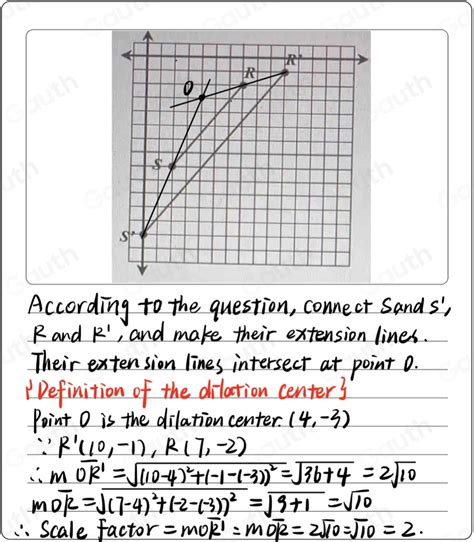 R'
R
O
S
S'
According to the question, connect S and S',
R and R', and make their extension lines.
Their extension lines intersect at point O.
{Definition of the dilation center}
Point O is the dilation center. (4,-3)
∵ R'(10,-1), R(7,-2)
∴ m OR' = √((10-4)²+(-1-(-3))²) = √36+4 = 2√10
m OR = √((7-4)²+(-2-(-3))²) = √9+1 = √10
∴ Scale factor = mOR' ÷ mOR = 2√10 ÷ √10 = 2.